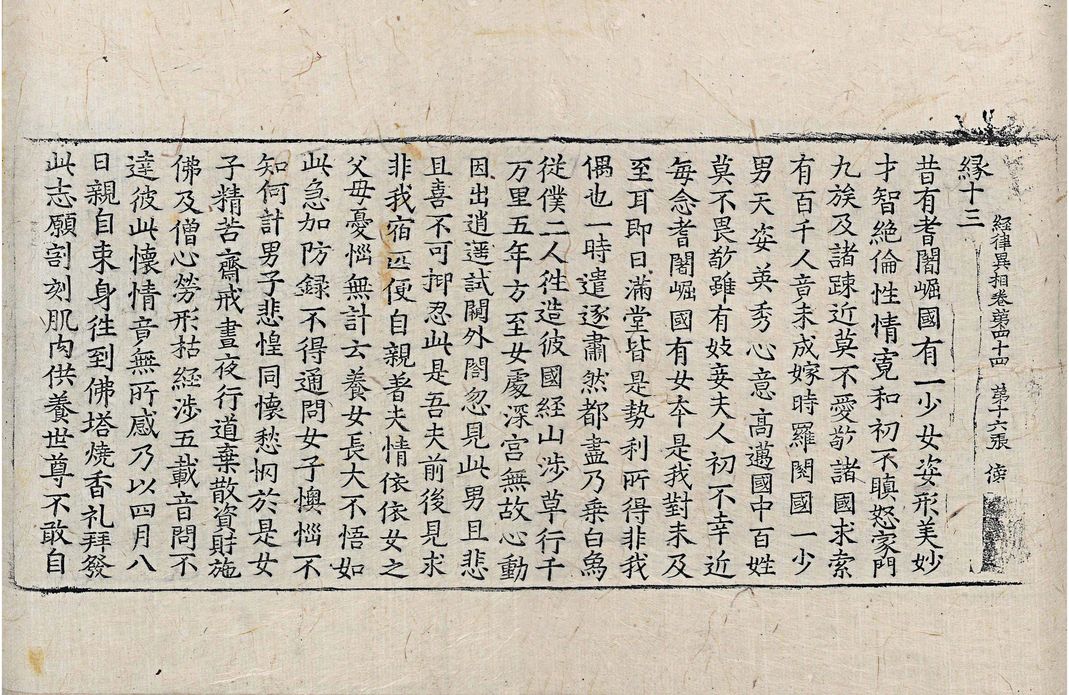 緣十三
経律異相卷第四十四 第十六張
昔有耆闍崛國有一少女姿形美妙
才智絶倫性情寬和初不瞋怒家門
九族及諸踈近莫不愛敬諸國求索
有百千人音未成嫁時羅閱國一少
男天姿英秀心意高邁國中百姓
莫不畏敬雖有妓妾夫人初不幸近
每念耆闍崛國有女本是我對未及
至耳即日滿堂皆是勢利所得非我
偶也一時遣逐肅然都盡乃乗白象
從僕二人徃造彼國経山涉草行千
万里五年方至女處深宮無故心動
因出逍遥試闚外閤忽見此男且悲
且喜不可抑忍此是吾夫前後見求
非我宿匹便自親著夫情依依女之
父母憂惱無計云養女長大不悟如
此急加防録不得通問女子懊惱不
知何計男子悲惶同懷愁惘於是女
子精苦齋戒晝夜行道棄散資財施
佛及僧心勞形枯経涉五載音問不
達彼此懷情音無所感乃以四月八
日親自束身徃到佛塔燒香礼拜發
此志願割刻肌肉供養世尊不敢自